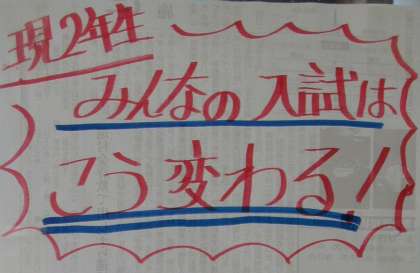 現2年生
みんなの入試は
こう変わる!